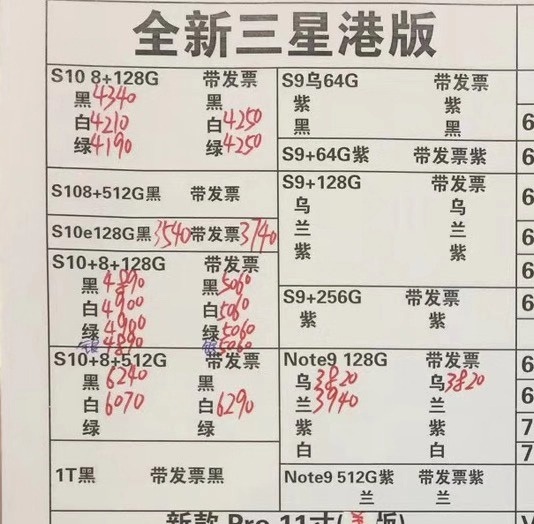 全新三星港版
S10 8+128G 带发票
黑4340 黑
白4210 白4250
绿4190 绿4250
S108+512G黑 带发票
S10e128G黑3540带发票3740
S10+8+128G 带发票
黑4890 黑5060
白4900 白5060
绿4900 绿5060
银4890 银5060
S10+8+512G 带发票
黑6240 黑
白6070 白6290
绿 绿
1T黑 带发票黑
S9乌64G 带发票
紫 紫
黑 黑
S9+64G紫 带发票紫
S9+128G 带发票
乌 乌
兰 兰
紫 紫
S9+256G 带发票
紫 紫
Note9 128G 带发票
乌3820 乌3820
兰3940 兰
紫 紫
白 白
Note9 512G紫 带发票紫
兰 兰
6
6
6
6
6
6
6
6
7
7
新款 Pro 11寸(美版)